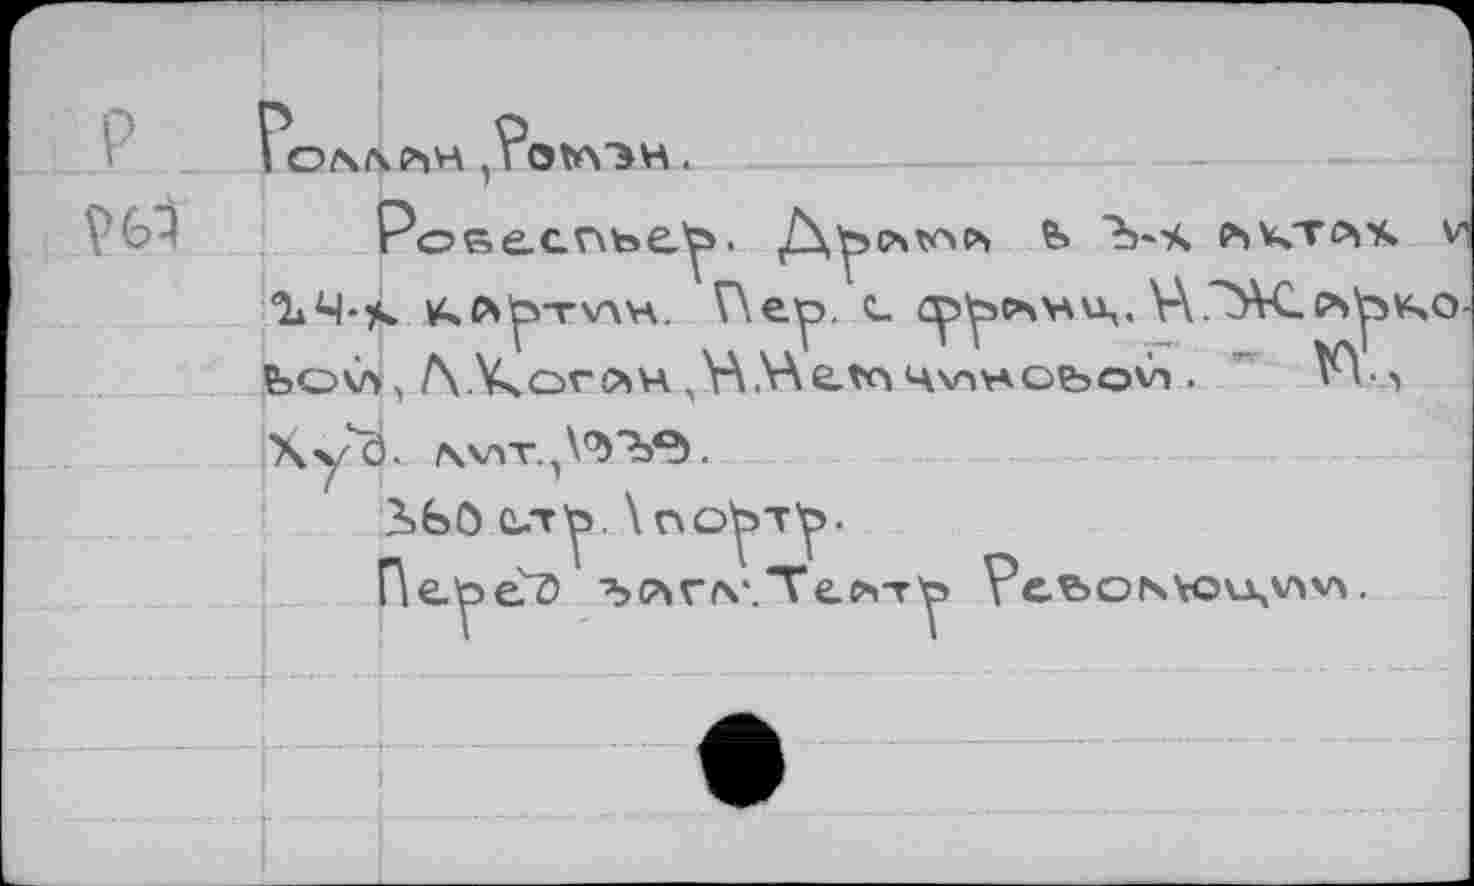 Р Роллан, Ромэн.
Р67 Робеспьер. Драма в 3-х актах и
24-х картин. Пер. с франц. И.Жарко-
вой, Л.Коган, Н.Немчиновой. М.,
Худ. лит., 1939.
стр. 1 портр.
Перед загл.: Театр Революции.